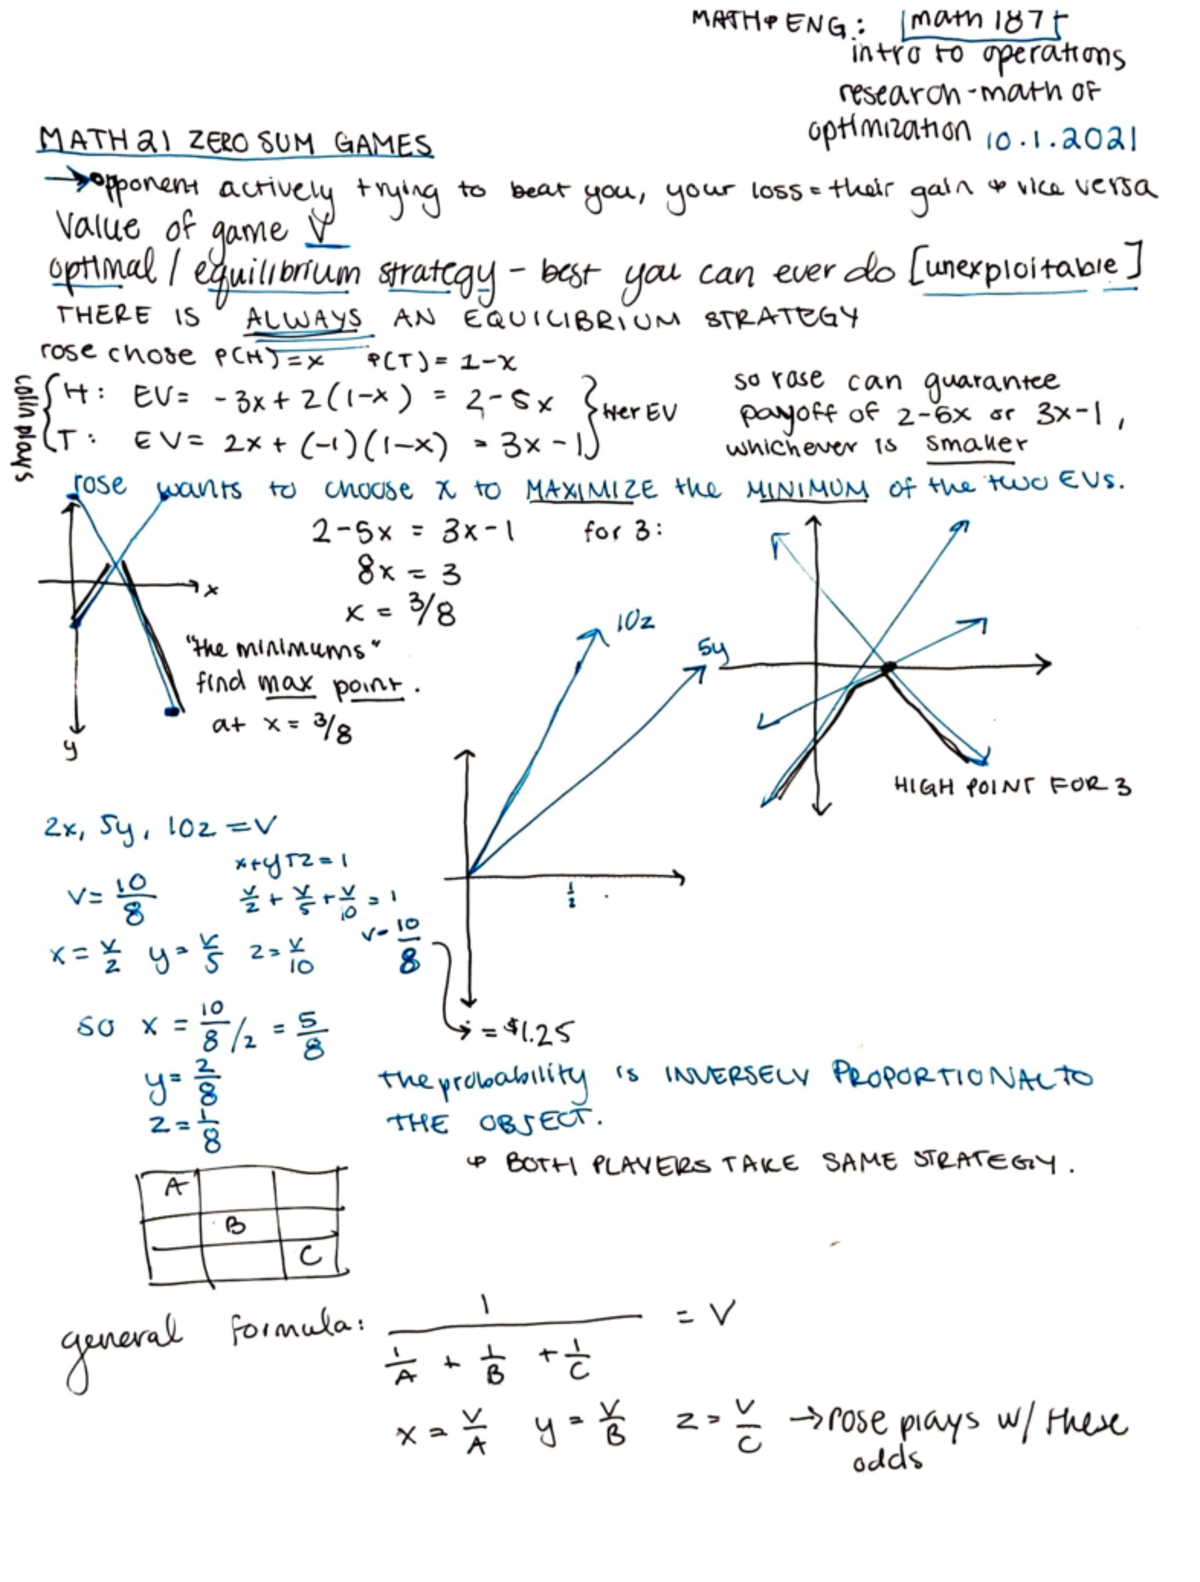 MATH & ENG: math 187
intro to operations
research - math of
optimization 10.1.2021
MATH 21 ZERO SUM GAMES
→ opponent actively trying to beat you, your loss = their gain & vice versa
Value of game V
optimal / equilibrium strategy - best you can ever do [unexploitable]
THERE IS ALWAYS AN EQUILIBRIUM STRATEGY
rose chose P(H) = x P(T) = 1-x
colin plays
H: EV = -3x + 2(1-x) = 2-5x
T: EV = 2x + (-1)(1-x) = 3x-1
Her EV
so rose can guarantee
payoff of 2-5x or 3x-1,
whichever is smaller
rose wants to choose x to MAXIMIZE the MINIMUM of the two EVs.
2-5x = 3x-1
8x = 3
x = 3/8
for 3:
x
y
"the minimums"
find max point.
at x = 3/8
10z
5y
1/2
HIGH POINT FOR 3
2x, 5y, 10z = V
x+y+z = 1
V = 10/8
V/2 + V/5 + V/10 = 1
V = 10/8
x = V/2 y = V/5 z = V/10
→ = $1.25
so x = 10/8 /2 = 5/8
y = 2/8
z = 1/8
the probability is INVERSELY PROPORTIONAL TO
THE OBJECT.
& BOTH PLAYERS TAKE SAME STRATEGY.
A
B
C
general formula: 1 / (1/A + 1/B + 1/C) = V
x = V/A y = V/B z = V/C → rose plays w/ these
odds